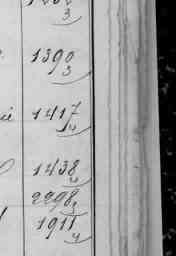 3
1390
3
1417
4
1438
4
2298
3
1911
4